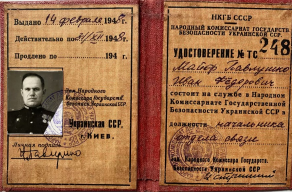 Выдано 14 февраля 1945г.
Действительно по 31/XII 1945г.
Продлено по 194 г.
Зам. Народного
Комиссара Государств.
Безопасности Украинской ССР.
Украинская ССР.
г. КИЕВ.
Личная подпись
НКГБ СССР
НАРОДНЫЙ КОМИССАРИАТ ГОСУДАРСТВЕННОЙ
БЕЗОПАСНОСТИ УКРАИНСКОЙ ССР.
УДОСТОВЕРЕНИЕ № ТС 248
Майор Павлушко
Иван Федорович
состоит на службе в Народном
Комиссариате Государственной
Безопасности Украинской ССР
должность начальника
отдела связи
Зам. Народного Комиссара Государств.
Безопасности Украинской ССР.